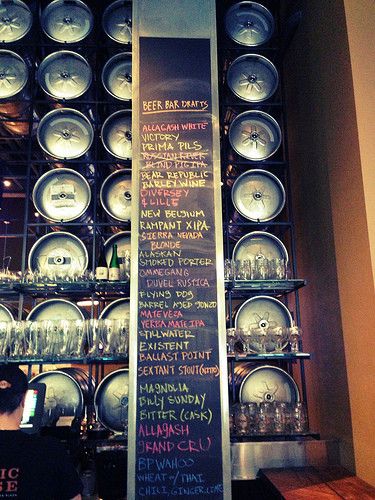 BEER BAR DRAFTS
ALLAGASH WHITE
VICTORY
PRIMA PILS
RUSSIAN RIVER
BLIND PIG IPA
BEAR REPUBLIC
BARLEY WINE
DIVERSEY
& LILLE
NEW BELGIUM
RAMPANT XIPA
SIERRA NEVADA
BLONDE
ALASKAN
SMOKED PORTER
OMMEGANG
DUVEL RUSTICA
FLYING DOG
BARREL AGED GONZO
MATEVEZA
YERBA MATE IPA
STILLWATER
EXISTENT
BALLAST POINT
SEXTANT STOUT (NITRO)
MAGNOLIA
BILLY SUNDAY
BITTER (CASK)
ALLAGASH
GRAND CRU
BP WAHOO
WHEAT W/ THAI
CHILI, GINGER, LIME
IC
SE